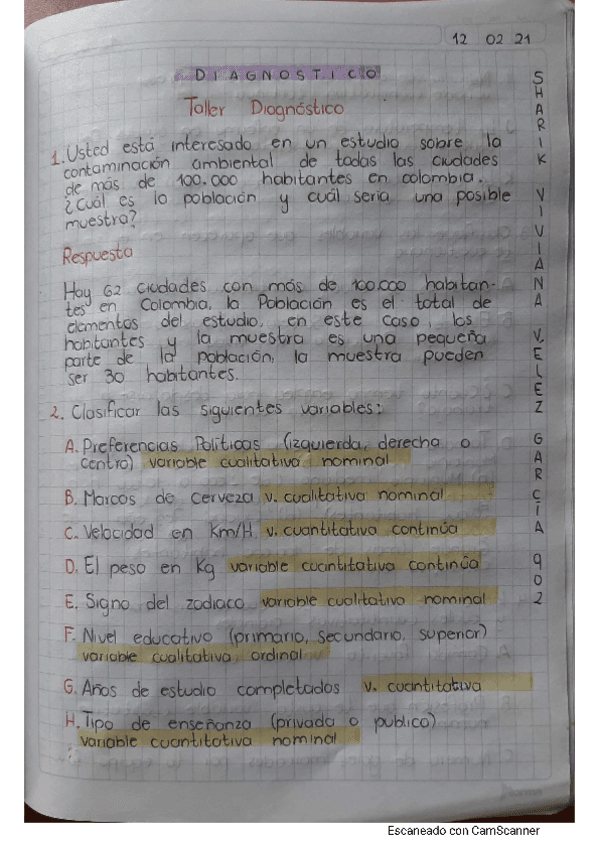 12 02 21
DIAGNOSTICO
Taller Diagnóstico
1. Usted está interesado en un estudio sobre la
contaminación ambiental de todas las ciudades
de más de 100.000 habitantes en colombia.
¿Cuál es la población y cuál seria una posible
muestra?
Respuesta
Hay 62 ciudades con más de 100.000 habitan-
tes en Colombia, la Población es el total de
elementos del estudio, en este caso, los
habitantes y la muestra es una pequeña
parte de la población, la muestra pueden
ser 30 habitantes.
2. Clasificar las siguientes variables:
A. Preferencias Políticas (izquierda, derecha o
centro) variable cualitativa nominal
B. Marcas de cerveza v. cualitativa nominal
C. Velocidad en Km/H v. cuantitativa continúa
D. El peso en Kg variable cuantitativa continúa
E. Signo del zodiaco variable cualitativa nominal
F. Nivel educativo (primario, secundario, superior)
variable cualitativa ordinal
G. Años de estudio completados v. cuantitativa
H. Tipo de enseñanza (privada o publica)
variable cuantitativa nominal
SHARIK VIVIANA VELEZ GARCÍA 902
Norma
Escaneado con CamScanner